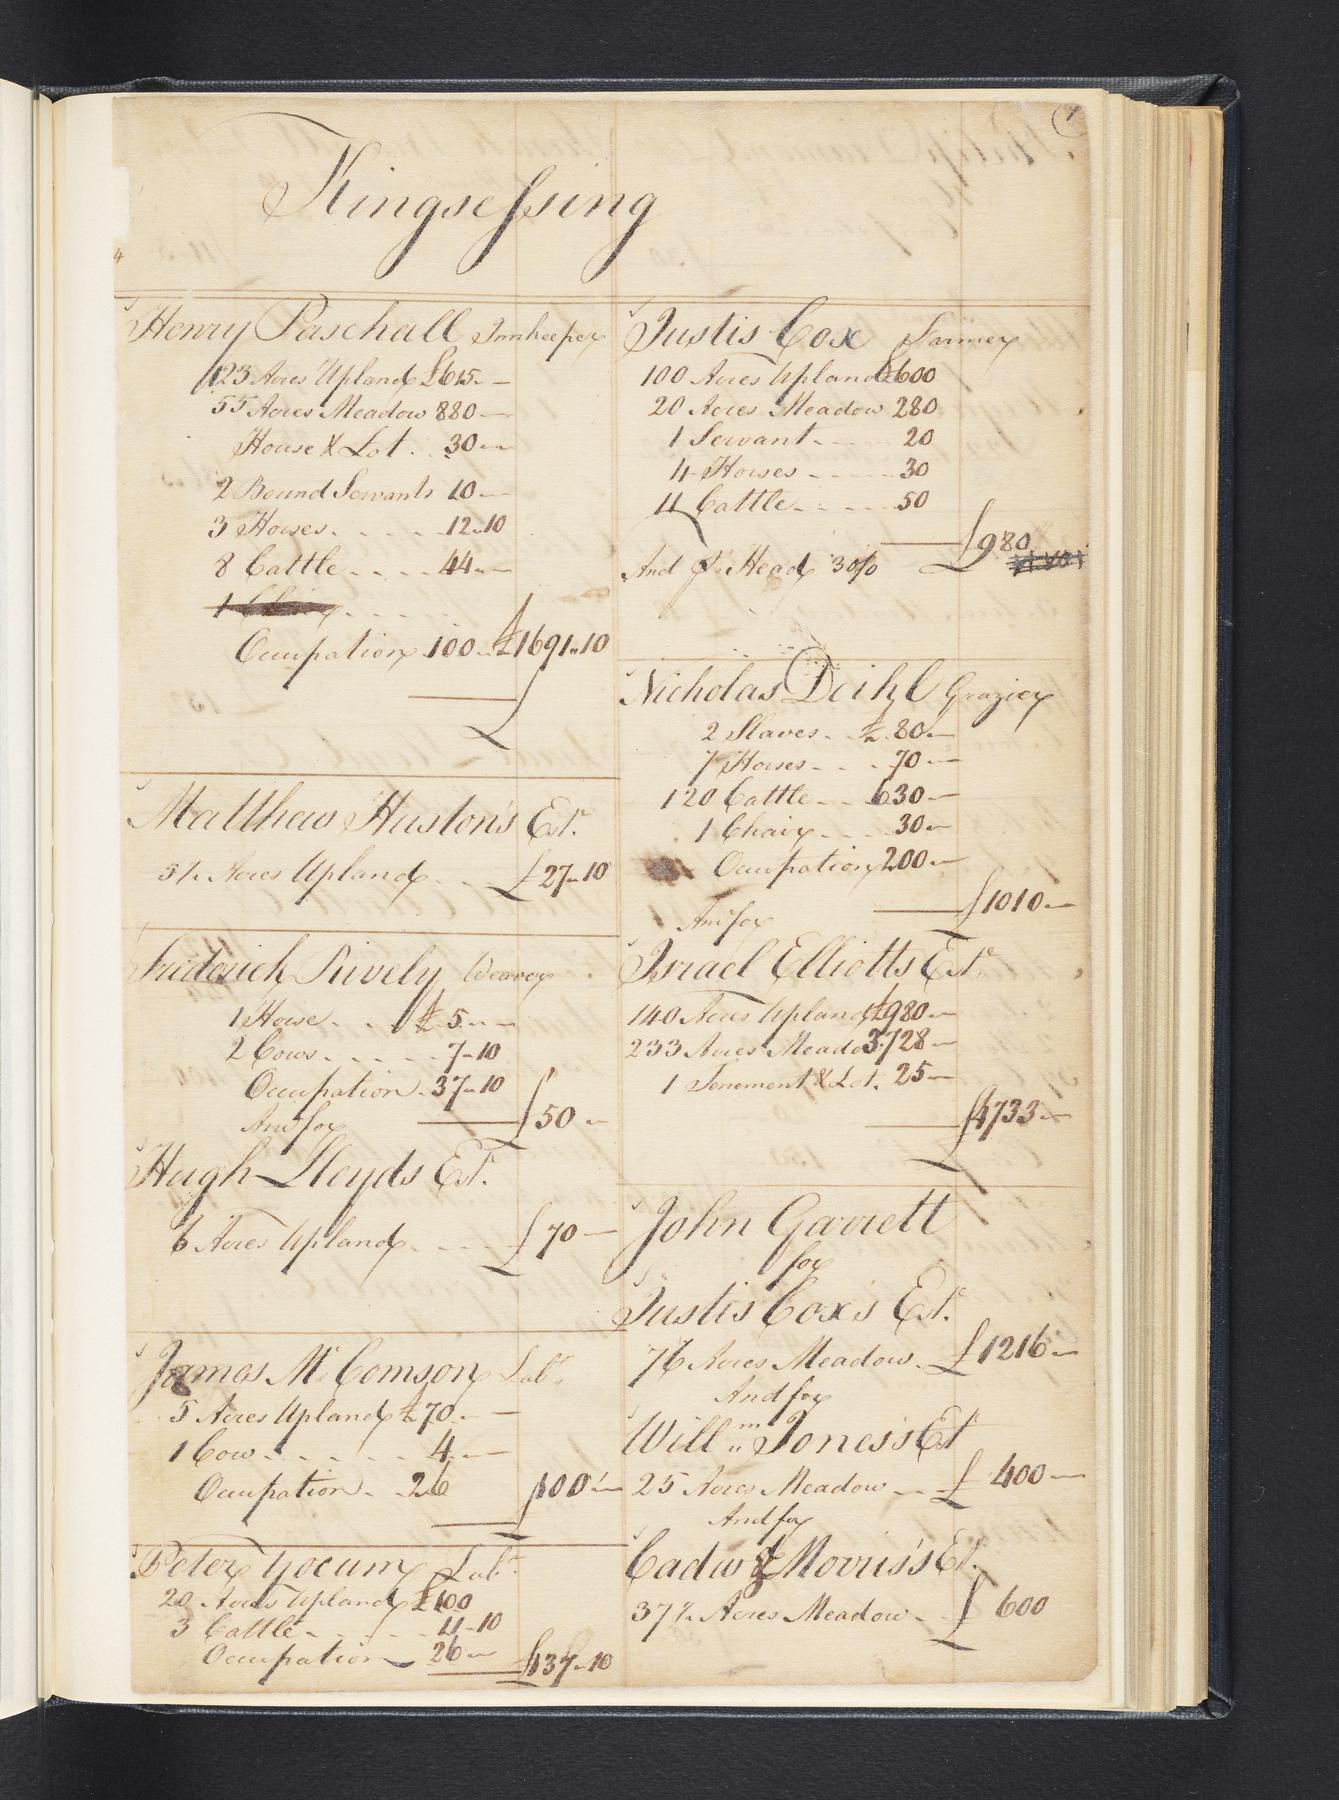 7
Kingsessing
4
Henry Paschall Innkeeper
123 Acres Upland £615.. —
55 Acres Meadow 880 —
House & Lot . . 30 ..
2 Bound Servants 10 —
3 Horses . . . . 12..10
8 Cattle . . . . 44 .. —
1 Chair . . . .
Occupation 100 .. £1691..10
Matthew Huston's Est.
5½ Acres Upland . . £27..10
Friderick Rively Weaver
1 Horse . . . £5 .. —
2 Cows . . . . . 7..10
Occupation . 37..10
And for £50 ..
Hugh Lloyds Est.
6 Acres Upland . . . . £70 —
James McComson Labr.
5 Acres Upland £70 .. —
1 Cow . . . . . . 4 .. —
Occupation . . 26 £100 .. —
Peter Yocum Labr.
20 Acres Upland £100
3 Cattle . . . . 11..10
Occupation 26 ..
£137..10
Justis Cox Farmer
100 Acres Upland £600
20 Acres Meadow 280
1 Servant . . . . 20
4 Horses . . . . . 30
11 Cattle . . . . . 50
£980
And pr. Head 30/
Nicholas Deihl Grazier
2 Slaves . . £80 ..
7 Horses . . . . 70 . —
120 Cattle . . . 630 . —
1 Chair . . . . 30 ..
Occupation 200 ..
£1010 ..
And for
Israel Elliotts Est.
140 Acres Upland £980 ..
233 Acres Meadow 3728 —
1 Tenement & Lot. 25 —
£4733 ..
John Garrett
for
Justis Cox's Est.
76 Acres Meadow . £1216 ..
And for
Willm. Jones's Est
25 Acres Meadow . . £400 —
And for
Cadwr. Morris's Est.
37½ Acres Meadow . . £600